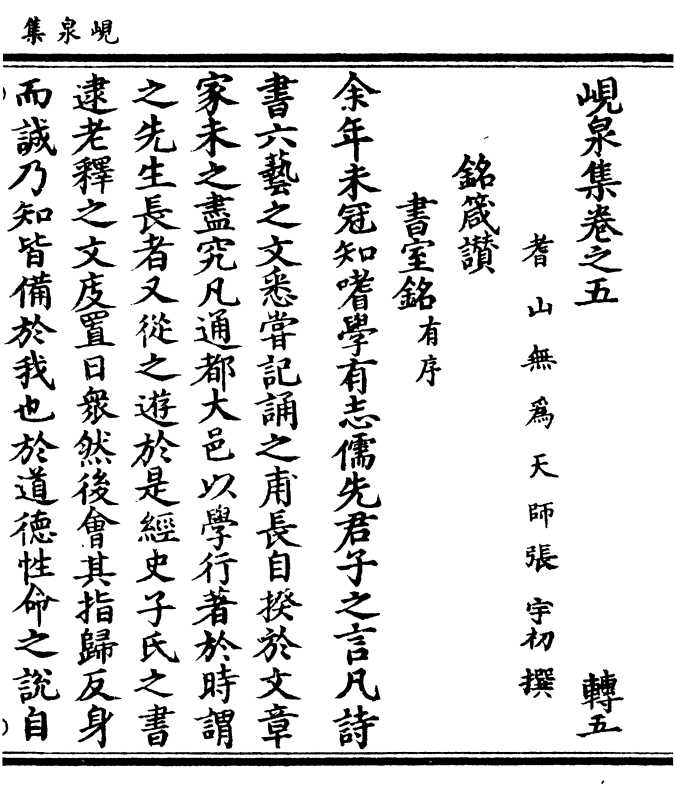 峴泉集
峴泉集卷之五
轉五
耆山無爲天師張宇初撰
銘箴讃
書室銘有序
余年未冠知嗜學有志儒先君子之言凡詩
書六藝之文悉甞記誦之甫長自揆於文章
家未之盡究凡通都大邑以學行著於時謂
之先生長者又從之遊於是經史子氏之書
逮老釋之文庋置日衆然後會其指歸反身
而誠乃知皆備於我也於道德性命之說自